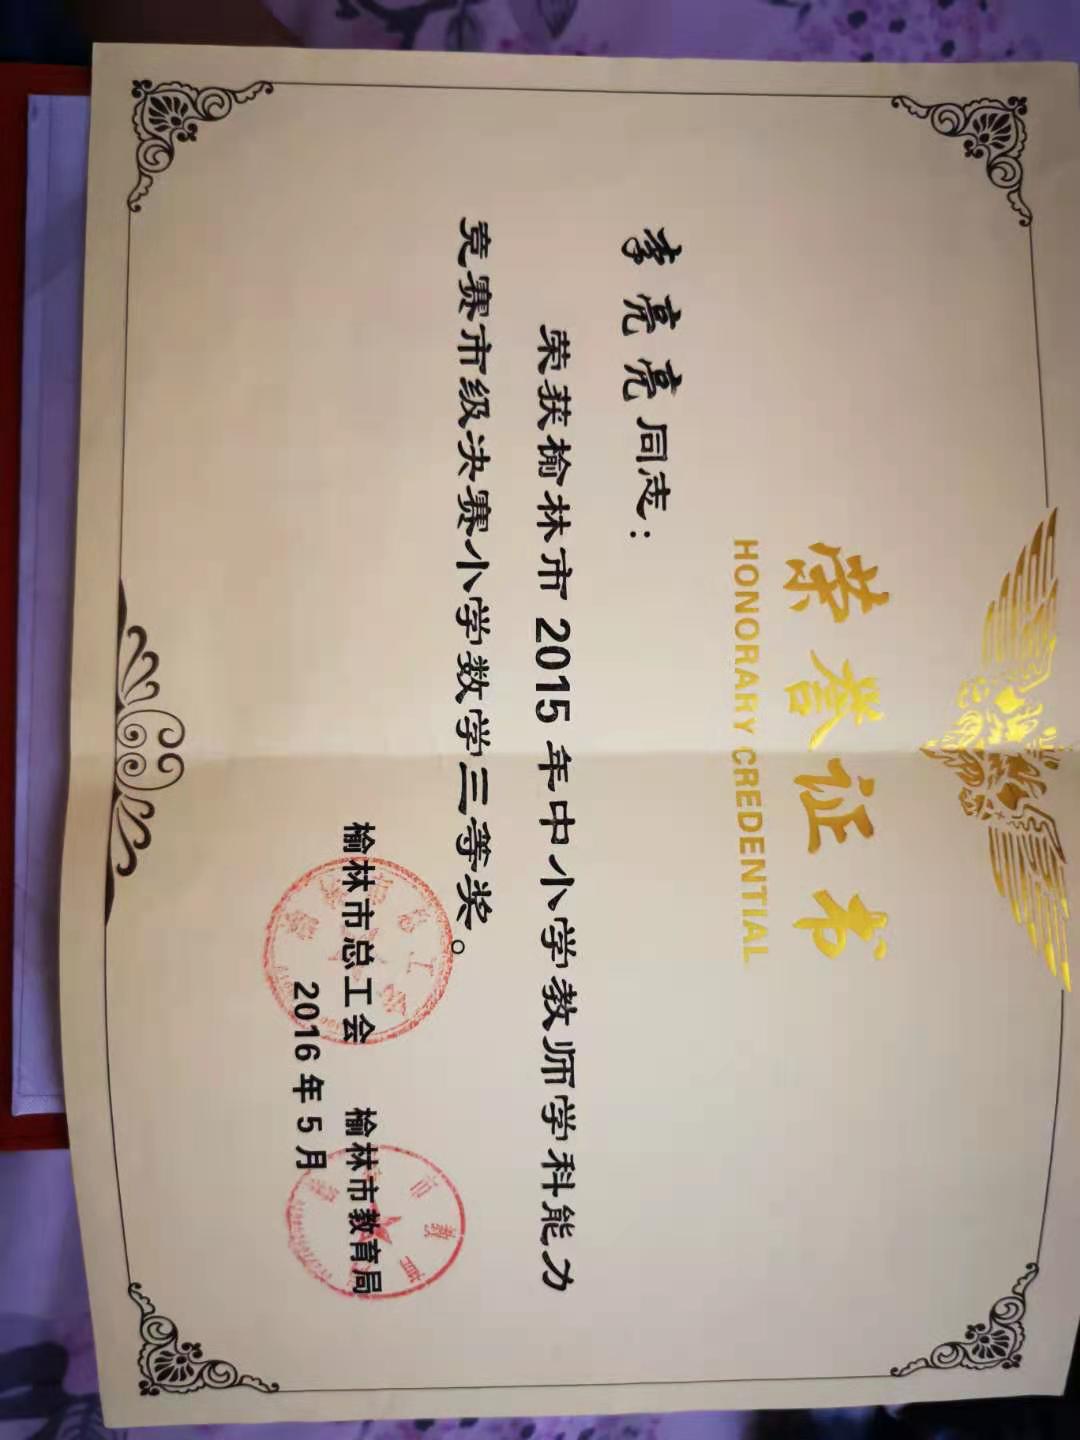 荣誉证书
HONORARY CREDENTIAL
李亮亮同志：
荣获榆林市2015年中小学教师学科能力
竞赛市级决赛小学数学三等奖。
榆林市总工会 榆林市教育局
2016年5月